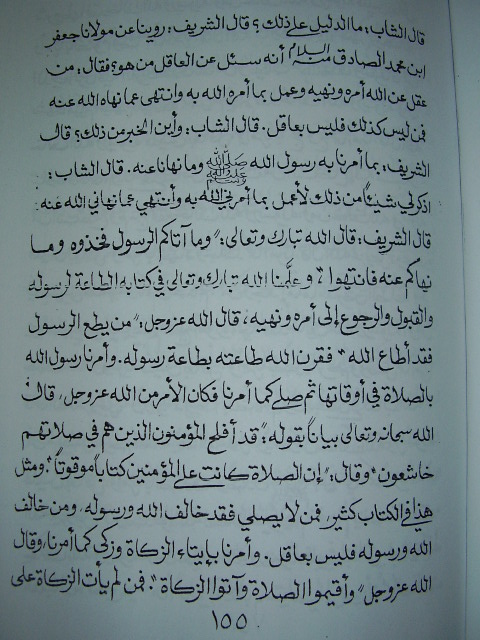 قال الشاب: ما الدليل على ذلك؟ قال الشريف: روينا عن مولانا جعفر
ابن محمد الصادق منه السلام أنه سئل عن العاقل من هو؟ فقال: من
عقل عن الله أمره ونهيه وعمل بما أمره الله به وانتهى عما نهاه الله عنه
فمن ليس كذلك فليس بعاقل. قال الشاب: وأين الخبر عن ذلك؟ قال
الشريف: بما أمرنا به رسول الله ﷺ وما نهانا عنه. قال الشاب:
اذكر لي شيئاً من ذلك لأعمل بما أمرني الله به وأنتهي عما نهاني الله عنه
قال الشريف: قال الله تبارك وتعالى: "وما آتاكم الرسول فخذوه وما
نهاكم عنه فانتهوا"، وعلَّمنا الله تبارك وتعالى في كتابه الطاعة لرسوله
والقبول والرجوع إلى أمره ونهيه، قال الله عز وجل: "من يطع الرسول
فقد أطاع الله" فقرن الله طاعته بطاعة رسوله. وأمرنا رسول الله
بالصلاة في أوقاتها ثم صلي كما أمرنا فكان الأمر من الله عز وجل، قال
الله سبحانه وتعالى بياناً بقوله: "قد أفلح المؤمنون الذين هم في صلاتهم
خاشعون" وقال: "إن الصلاة كانت على المؤمنين كتاباً موقوتاً". ومثل
هذا في الكتاب كثير، فمن لا يصلي فقد خالف الله ورسوله، ومن خالف
الله ورسوله فليس بعاقل. وأمرنا بإيتاء الزكاة وزكى كما أمرنا، وقال
الله عز وجل "وأقيموا الصلاة وآتوا الزكاة". فمن لم يأت الزكاة على
١٥٥